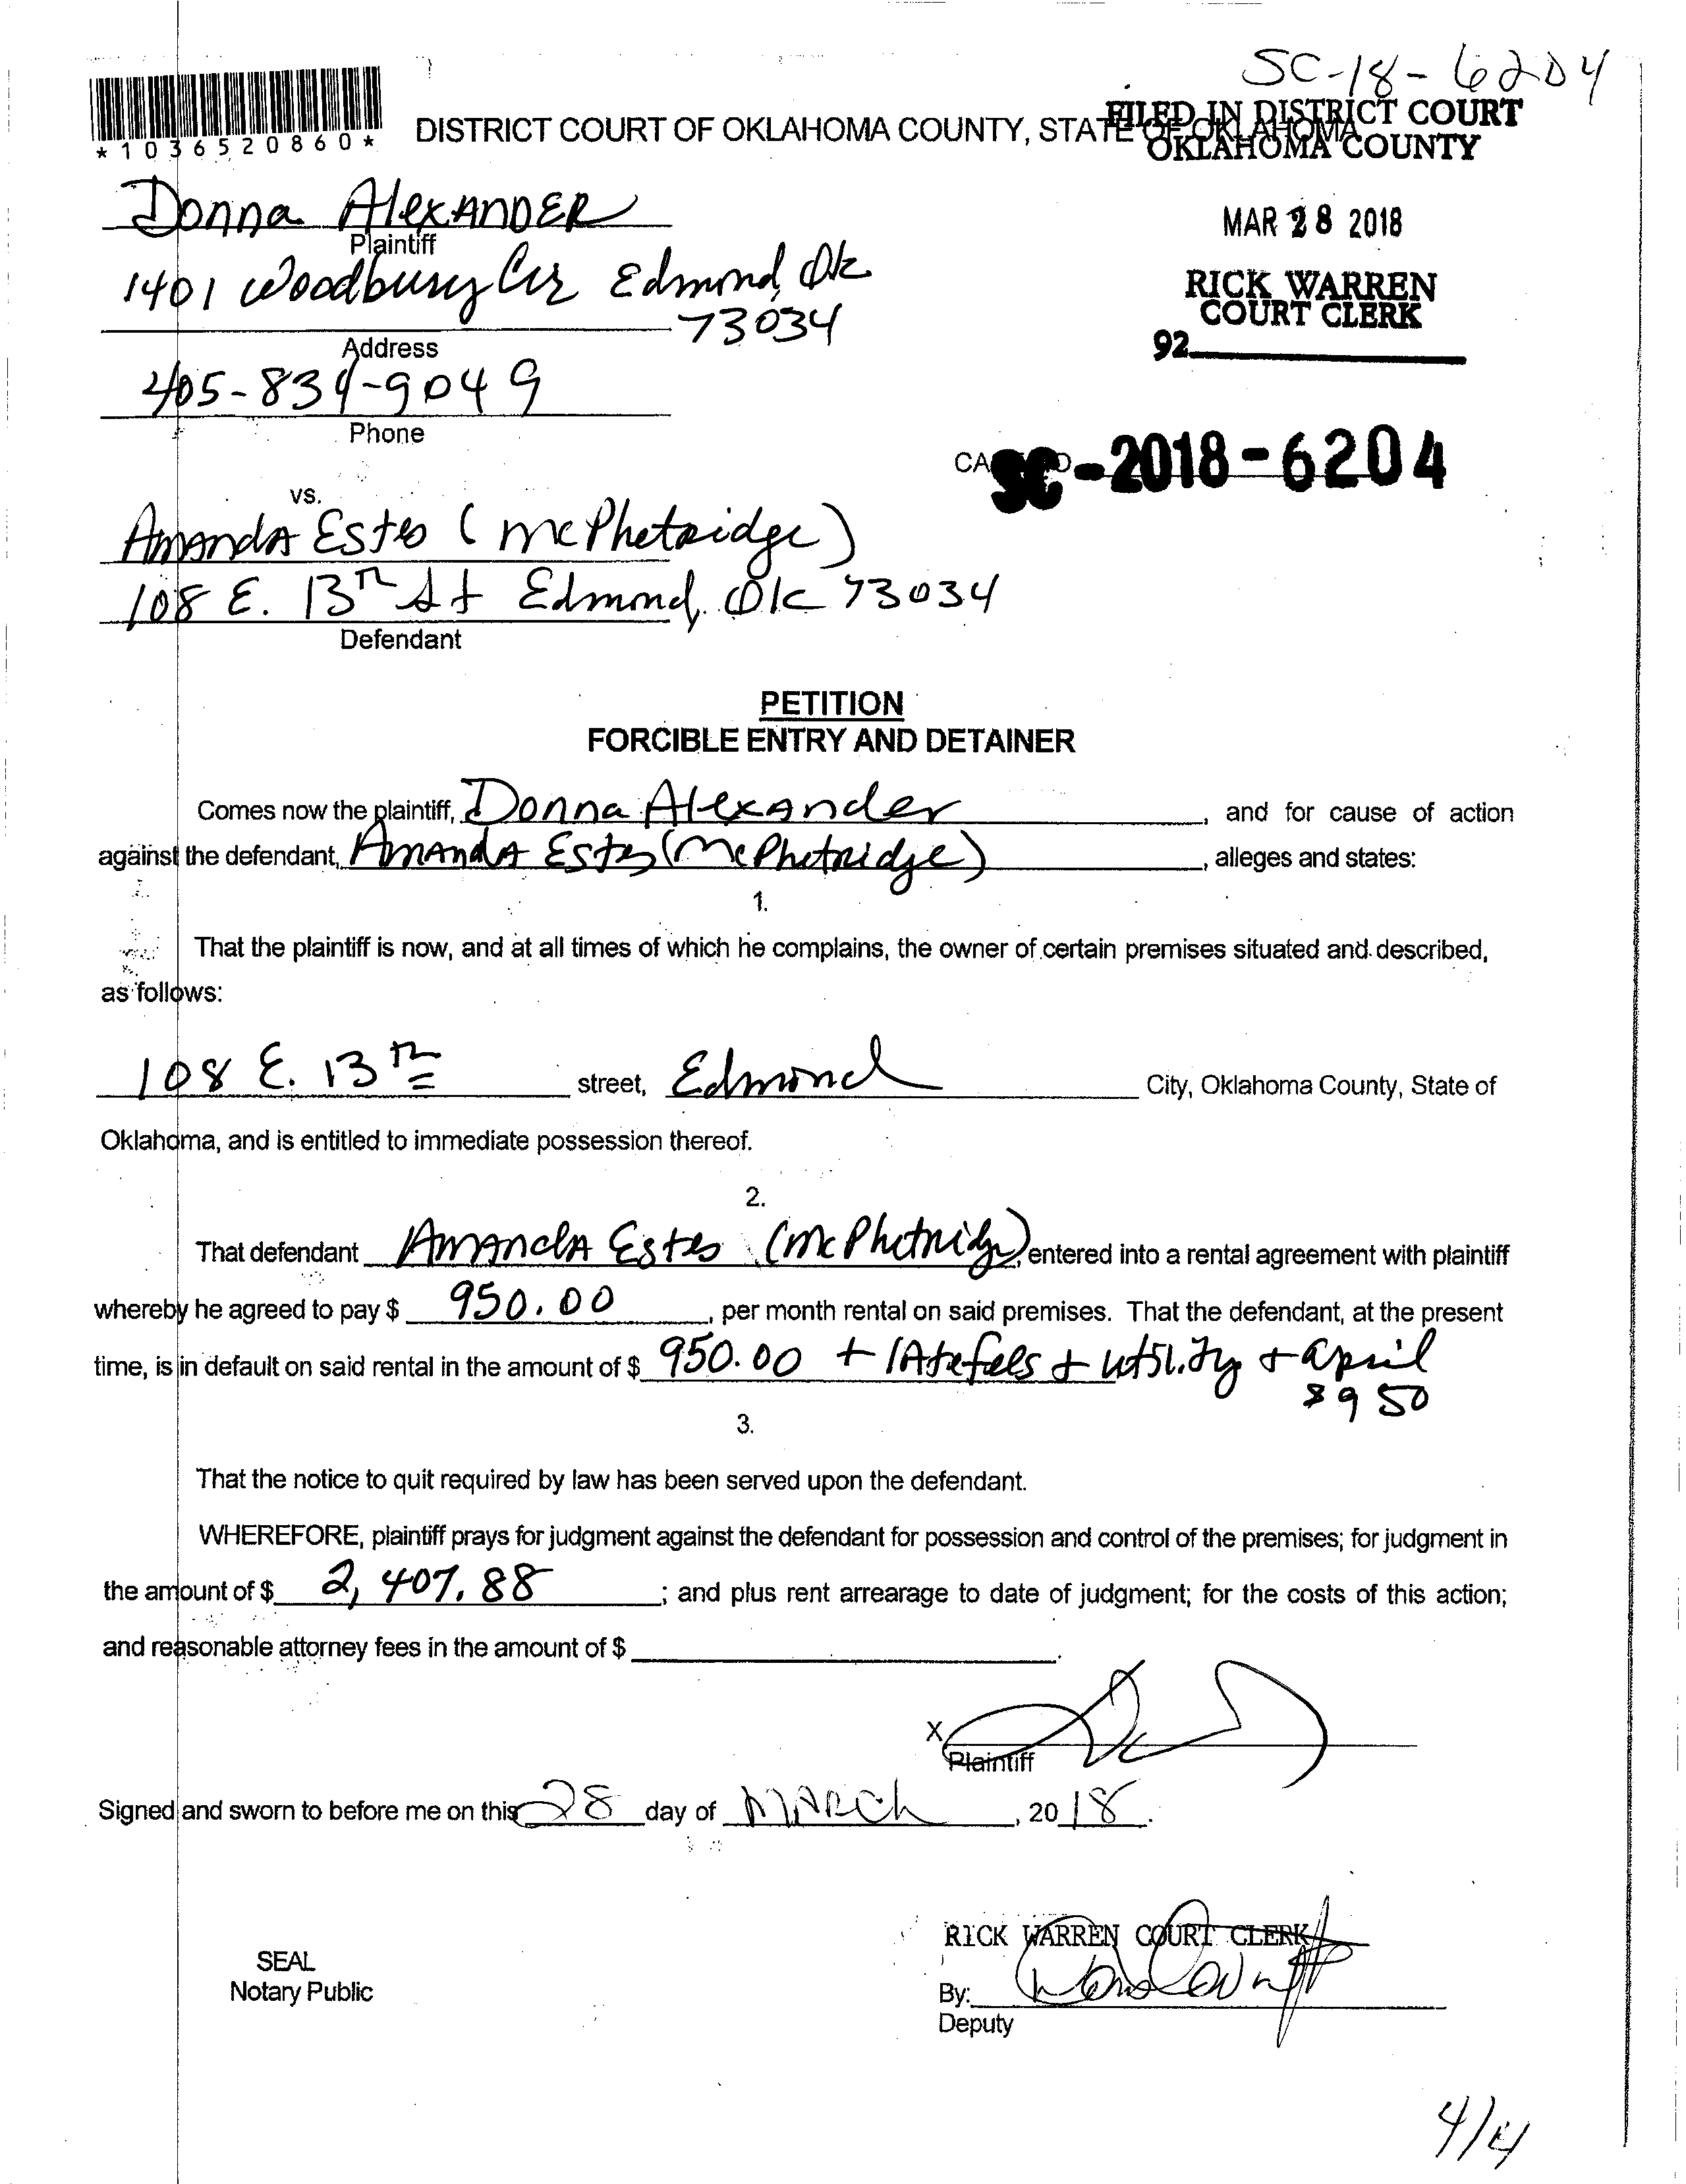 SC-18-6204
FILED IN DISTRICT COURT
OKLAHOMA COUNTY
*1036520860*
DISTRICT COURT OF OKLAHOMA COUNTY, STATE OF OKLAHOMA
MAR 28 2018
RICK WARREN
COURT CLERK
92
Donna AlexANDER
Plaintiff
1401 Woodbury Cir Edmond, Ok
73034
Address
405-834-9049
Phone
SC-2018-6204
vs.
AmandA Estes (McPhetridge)
108 E. 13th St Edmond, Ok 73034
Defendant
PETITION
FORCIBLE ENTRY AND DETAINER
Comes now the plaintiff, Donna Alexander, and for cause of action
against the defendant, AmandA Estes (McPhetridge), alleges and states:
1.
That the plaintiff is now, and at all times of which he complains, the owner of certain premises situated and described,
as follows:
108 E. 13th street, Edmond City, Oklahoma County, State of
Oklahoma, and is entitled to immediate possession thereof.
2.
That defendant AmandA Estes (McPhetridge), entered into a rental agreement with plaintiff
whereby he agreed to pay $ 950.00, per month rental on said premises. That the defendant, at the present
time, is in default on said rental in the amount of $ 950.00 + latefees + utility + April
$950
3.
That the notice to quit required by law has been served upon the defendant.
WHEREFORE, plaintiff prays for judgment against the defendant for possession and control of the premises; for judgment in
the amount of $ 2,407.88; and plus rent arrearage to date of judgment; for the costs of this action;
and reasonable attorney fees in the amount of $ .
X
Plaintiff
Signed and sworn to before me on this 28 day of MARCh, 2018.
RICK WARREN COURT CLERK
SEAL
Notary Public
By:
Deputy
4/4